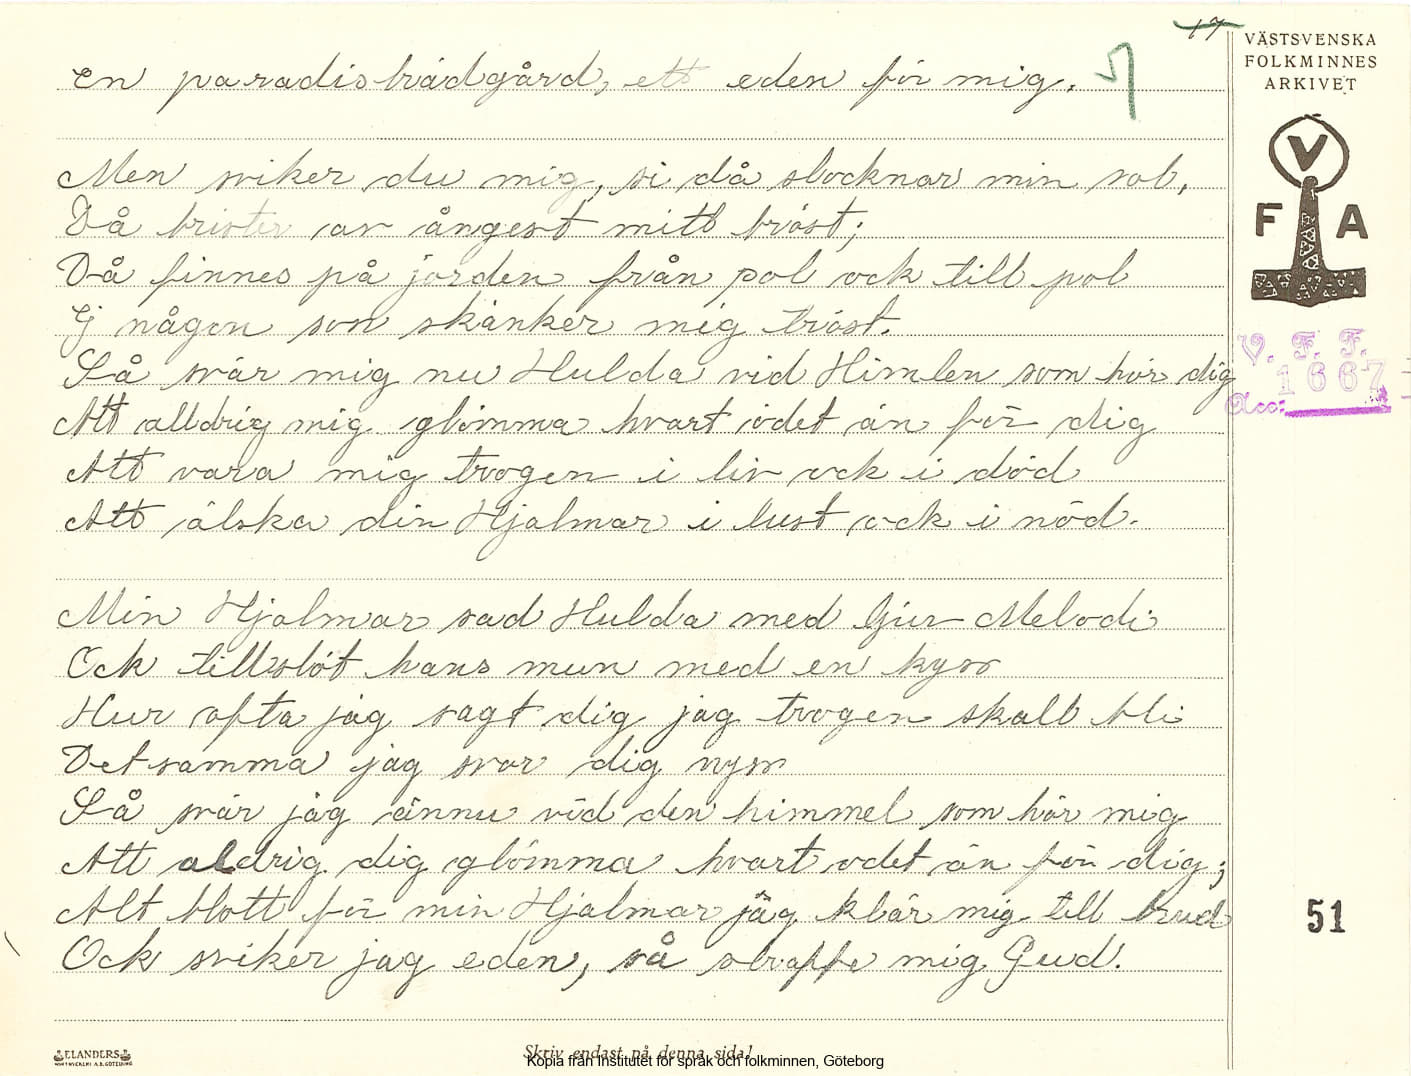 17
en paradisträdgård, ett eden för mig.
VÄSTSVENSKA
FOLKMINNES
ARKIVET
V
F A
Men sviker du mig, si då slocknar min sol,
Då brister av ångest mitt bröst;
Då finnes på jorden från pol ock till pol
Ej någon som skänker mig tröst.
Så svär mig nu Hulda vid Himlen som hör dig
Att alldrig mig glömma hvart ödet än för dig
Att vara mig trogen i liv ock i död
Att älska din Hjalmar i lust ock i nöd.
V. F. F.
1667
Acc:
Min Hjalmar sad Hulda med ljuv Melodi
Ock tillslöt hans mun med en kyss
Hur ofta jag sagt dig jag trogen skall bli
Det samma jag svor dig nyss
Så svär jag ännu vid den himmel som hör mig
Att aldrig dig glömma hvart ödet än för dig;
Alt blott för min Hjalmar jag klär mig till brud
Ock sviker jag eden, så straffe mig Gud.
51
ELANDERS
Skriv endast på denna sida!
Kopia från Institutet för språk och folkminnen, Göteborg